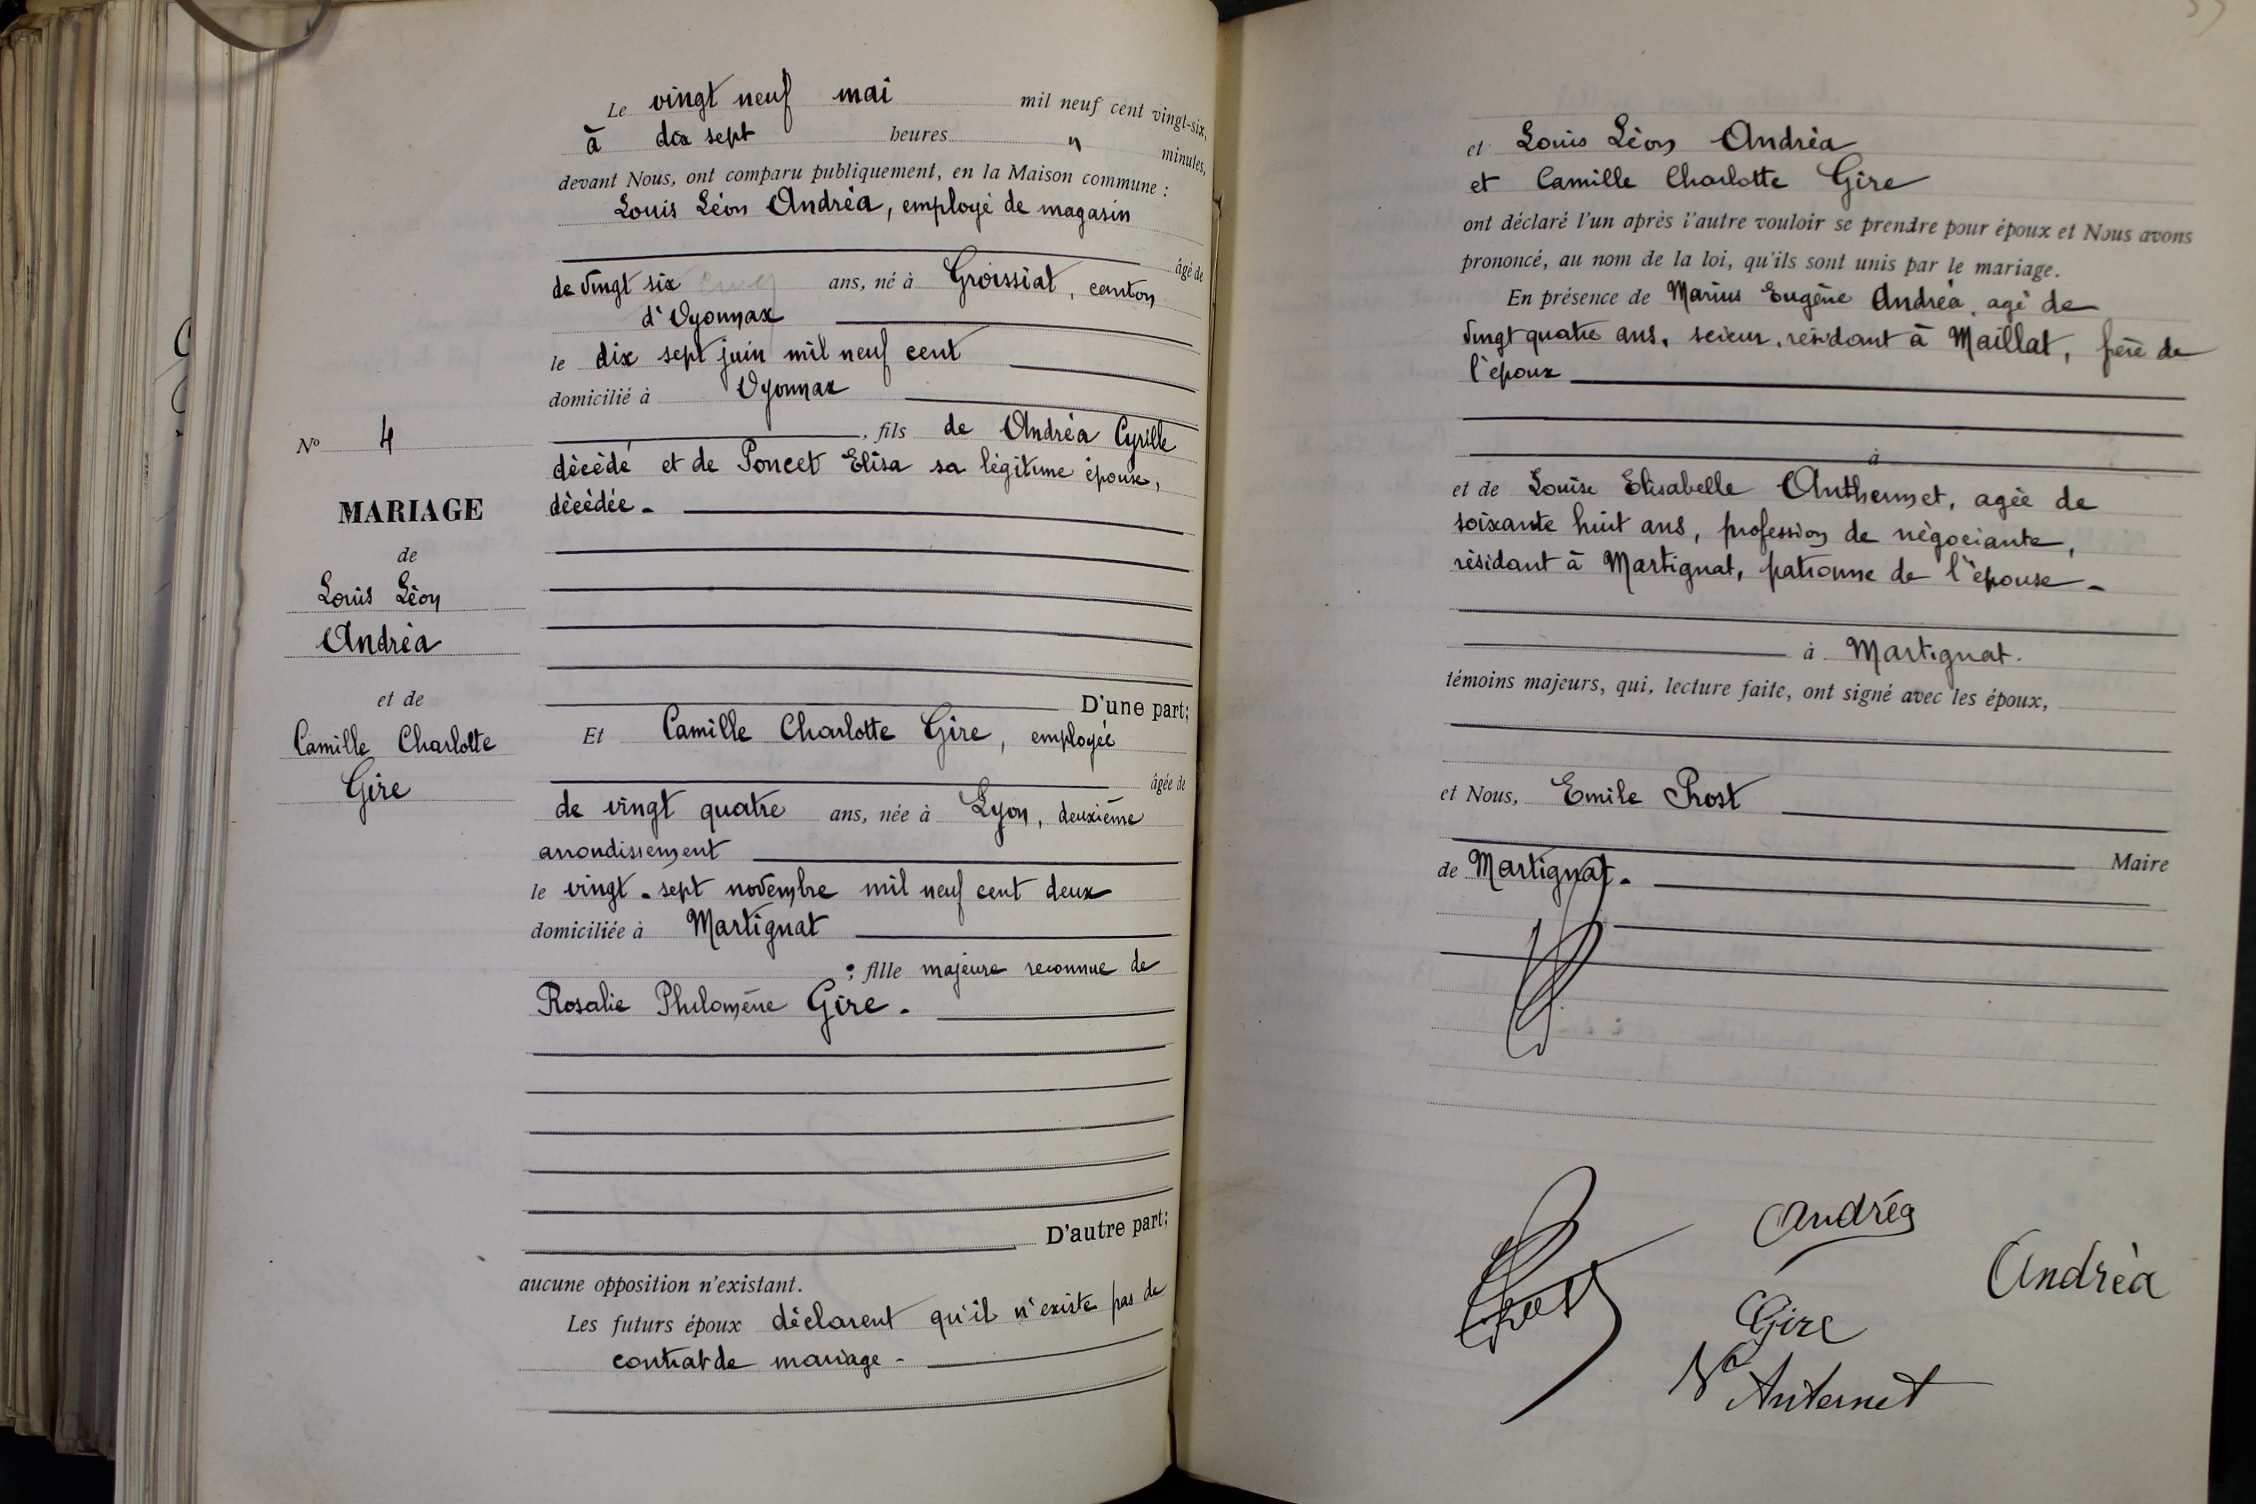 N° 4
MARIAGE
de
Louis Léon
Andréa
et de
Camille Charlotte
Gire
Le vingt neuf mai mil neuf cent vingt-six,
à dix sept heures " minutes,
devant Nous, ont comparu publiquement, en la Maison commune :
Louis Léon Andréa, employé de magasin
âgé de
de vingt six ans, né à Groissiat, canton
d'Oyonnax
le dix sept juin mil neuf cent
domicilié à Oyonnax
, fils de Andréa Cyrille
décédé et de Poncet Elisa sa légitime épouse,
décédée.
D'une part;
Et Camille Charlotte Gire, employée
âgée de
de vingt quatre ans, née à Lyon, deuxième
arrondissement
le vingt-sept novembre mil neuf cent deux
domiciliée à Martignat
; fille majeure reconnue de
Rosalie Philomène Gire.
D'autre part;
aucune opposition n'existant.
Les futurs époux déclarent qu'il n'existe pas de
contrat de mariage -
et Louis Léon Andréa
et Camille Charlotte Gire
ont déclaré l'un après l'autre vouloir se prendre pour époux et Nous avons
prononcé, au nom de la loi, qu'ils sont unis par le mariage.
En présence de Marius Eugène Andréa, agé de
vingt quatre ans, scieur, résidant à Maillat, frère de
l'époux
à
et de Louise Elisabelle Anthermet, agée de
soixante huit ans, profession de négociante,
résidant à Martignat, patronne de l'épouse -
à Martignat.
témoins majeurs, qui, lecture faite, ont signé avec les époux,
et Nous, Emile Prost
Maire
de Martignat.
Andréa
Andréa
Prost
Gire
Vve Anternet